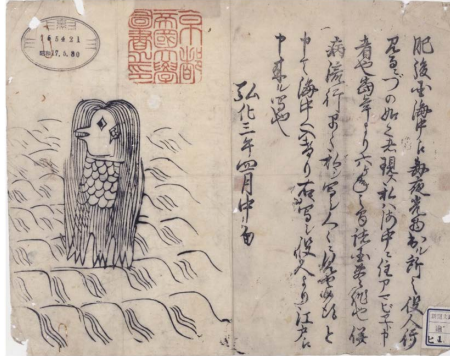 肥後国海中え毎夜光物出ル所之役人行
見るニづの如之者現ス私ハ海中ニ住アマビヱト申
者也当年より六ケ年之間諸国豊作也併
病流行早々私ヲ写シ人々ニ見せ候得と
申て海中へ入けり右写シ役人より江戸え
申来ル写也
弘化三年四月中旬
京都
帝國大學
圖書之印